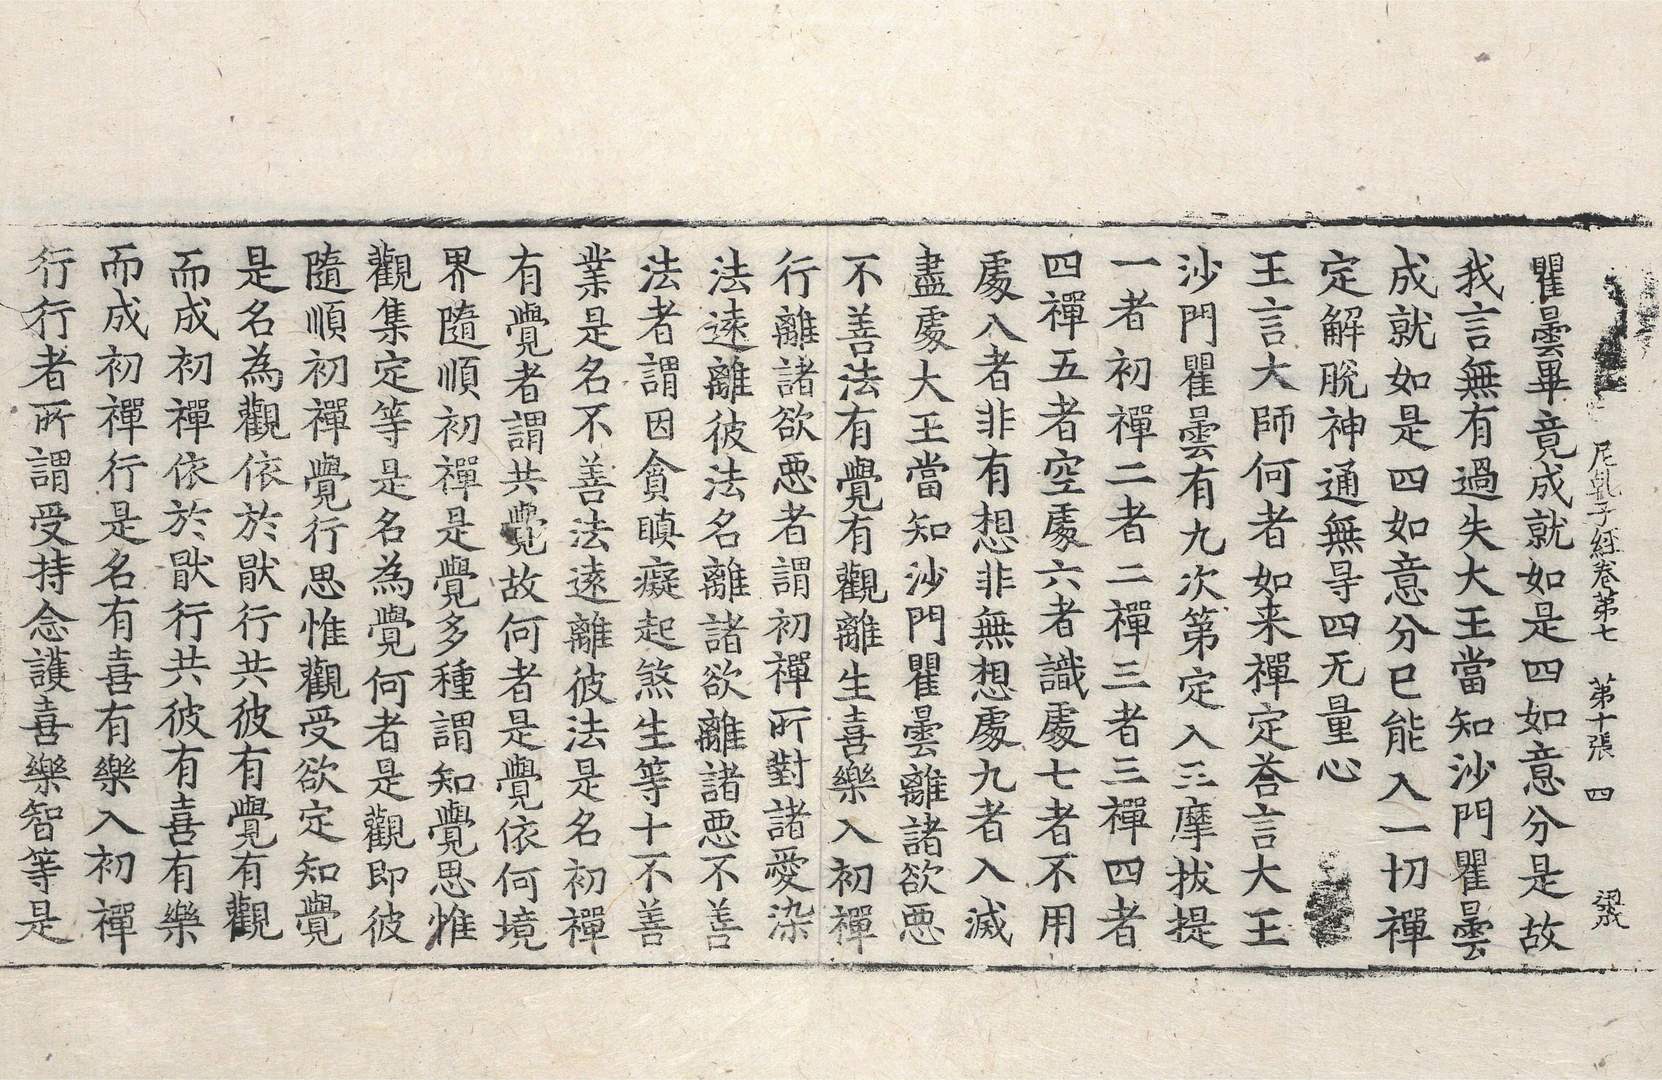 尼乹子經卷苐七　苐十張　四　梁
瞿曇畢竟成就如是四如意分是故
我言無有過失大王當知沙門瞿曇
成就如是四如意分已能入一切禪
定解脫神通無㝵四无量心
王言大師何者如来禪定荅言大王
沙門瞿曇有九次第定入三摩拔提
一者初禪二者二禪三者三禪四者
四禪五者空處六者識處七者不用
處八者非有想非無想處九者入滅
盡處大王當知沙門瞿曇離諸欲惡
不善法有覺有觀離生喜樂入初禪
行離諸欲惡者謂初禪所對諸愛染
法遠離彼法名離諸欲離諸惡不善
法者謂因貪瞋癡起煞生等十不善
業是名不善法遠離彼法是名初禪
有覺者謂共覺故何者是覺依何境
界隨順初禪是覺多種謂知覺思惟
觀集定等是名為覺何者是觀即彼
隨順初禪覺行思惟觀受欲定知覺
是名為觀依於猒行共彼有覺有觀
而成初禪依於猒行共彼有喜有樂
而成初禪行是名有喜有樂入初禪
行行者所謂受持念護喜樂智等是